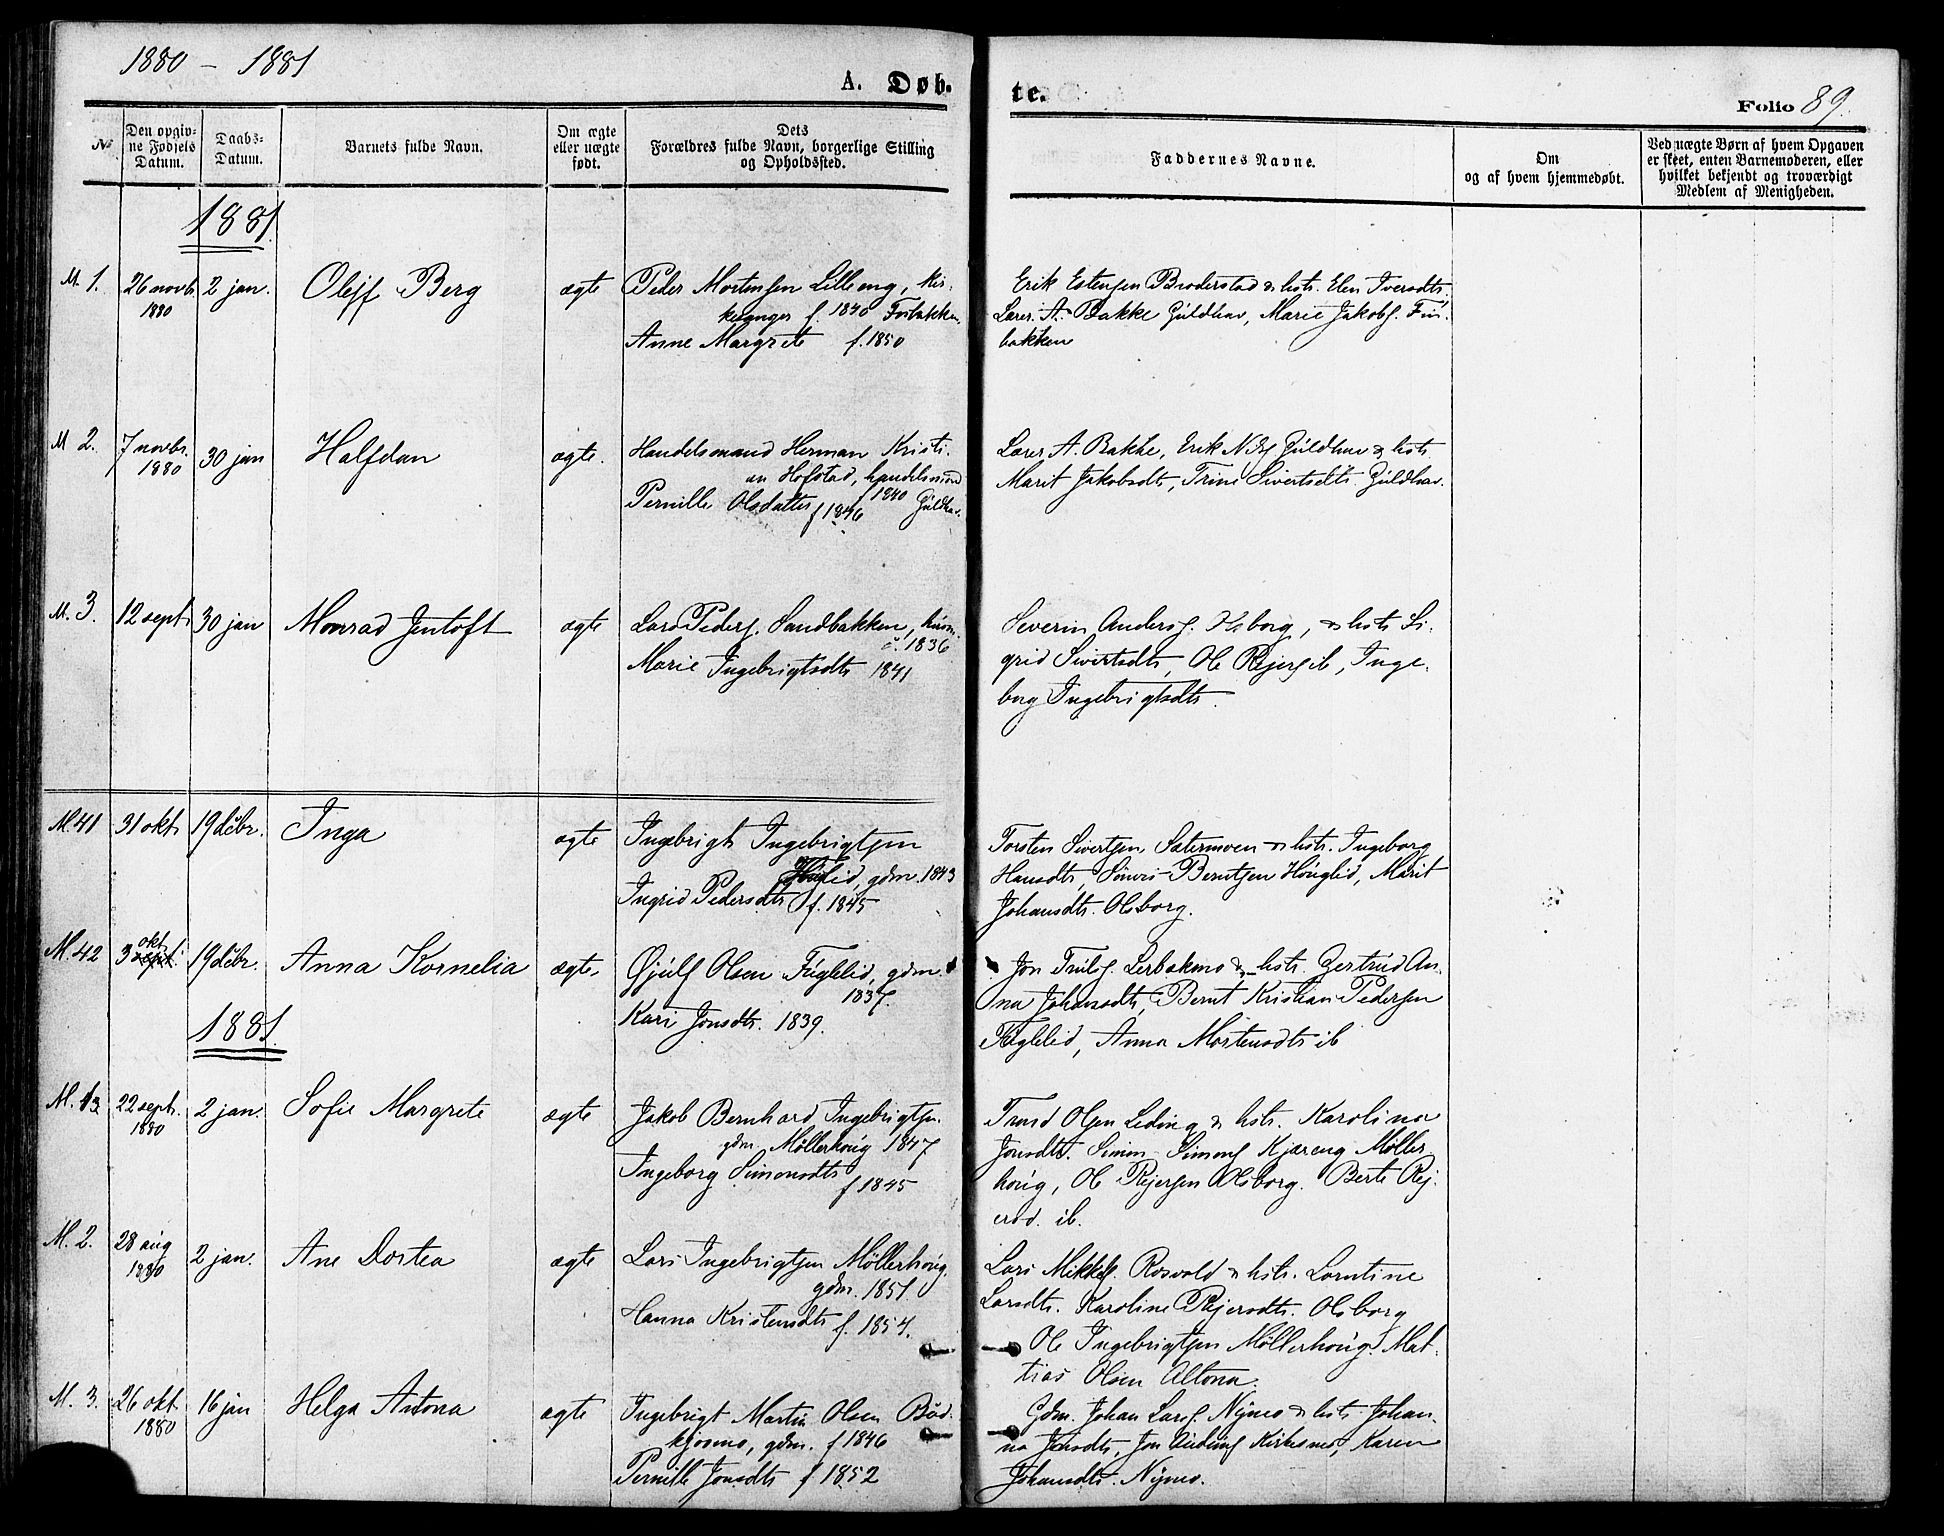 1880 - 1881
A. Døb.
te.
Folio 89.
№
Den opgiv-
ne Fødsels
Datum.
Daabs-
Datum.
Barnets fulde Navn.
Om ægte
eller uægte
født.
Dets
Forældres fulde Navn, borgerlige Stilling
og Opholdssted.
Faddernes Navne.
Om
og af hvem hjemmedøbt.
Ved uægte Børn af hvem Opgaven
er skeet, enten Barnemoderen, eller
hvilket bekjendt og troværdigt
Medlem af Menigheden.
1881.
M. 1.
26 novb.
1880
2 jan.
Olejf Berg
ægte
Peder Mortensen Lilleeng, kir-
kesanger f. 1840
Anne Margrete f. 1850
Erik Estensen Broderstad & hstr. Elen Iversdtr.
Lærer A. Bakke Guldhav, Marie Jakobs.
bakken
M 2.
7 novbr.
1880
30 jan
Halfdan
ægte.
Handelsmand Herman Kristi-
an Hofstad, handelsmand
f 1840 Guldhav.
Pernille Olsdatter f 1846
Lærer A. Bakke, Erik Guldhav & hstr.
Marit Jakobsdtr, Trine Sivertsdtr. Guldhav.
M. 3.
12 sept.
30 jan
Monrad Jentoft
ægte
Lars Peders. Sandbakken,
1836
Marie Ingebrigtsdtr 1841
Severin Anders. Olsborg, & hstr. Si-
grid Sivertsdtr, Ole Rejers. ib, Inge-
borg Ingebrigtsdtr.
M. 41
31 okt.
19 debr.
Inga
ægte
Ingebrigt Ingebrigtsen
gdm. 1843
Ingrid Pedersdtr f. 1845
Torsten Sivertsen Sætermoen & hstr. Ingeborg
Hansdtr, Berntsen Hønglid, Marit
Johansdtr. Olsborg.
M. 42
okt.
3 sept.
19 debr.
Anna Kornelia
ægte.
Øjulf Olsen Fuglelid, gdm.
1837.
Kari Jonsdtr. 1839.
Jon Lerbakmo & hstr. Gertrud An-
na Johansdtr, Bernt Kristian Pedersen
Fuglelid, Anna Mortensdtr ib
1881.
M. 13
22 sept.
1880
2 jan.
Sofie Margrete
ægte
Jakob Bernhard Ingebrigtsen.
gdm. Møllerhoug 1847
Ingeborg Simonsdtr
f 1845
Trond Olsen Leding & hstr. Karolina
Jonsdtr. Simon Simons. Kjæreng Møller-
houg, Ole Rejersen Olsborg. Berte Rej-
ersd. ib.
M. 2.
28 aug
1880
2 jan.
Ane Dortea
ægte
Lars Ingebrigtsen Møllerhoug.
gdm. 1851.
Hanna Kristensdtr f. 1854.
Lars Mikkels. Rosvold & hstr. Lorntine
Larsdtr. Karoline Rejersdtr. Olsborg
Ole Ingebrigtsen Møllerhoug. Mat-
tias Olsen Altona.
M. 3.
26 okt.
1880
16 jan
Helga Antona
ægte
Ingebrigt Martin Olsen Bød-
kjosmo, gdm. f 1846
Pernille Jonsdtr f 1852
Gdm. Johan Lars. Nymo & hstr Johan-
na Jonsdtr, Jon Kirkesmo, Karen
Johansdtr. Nymo.